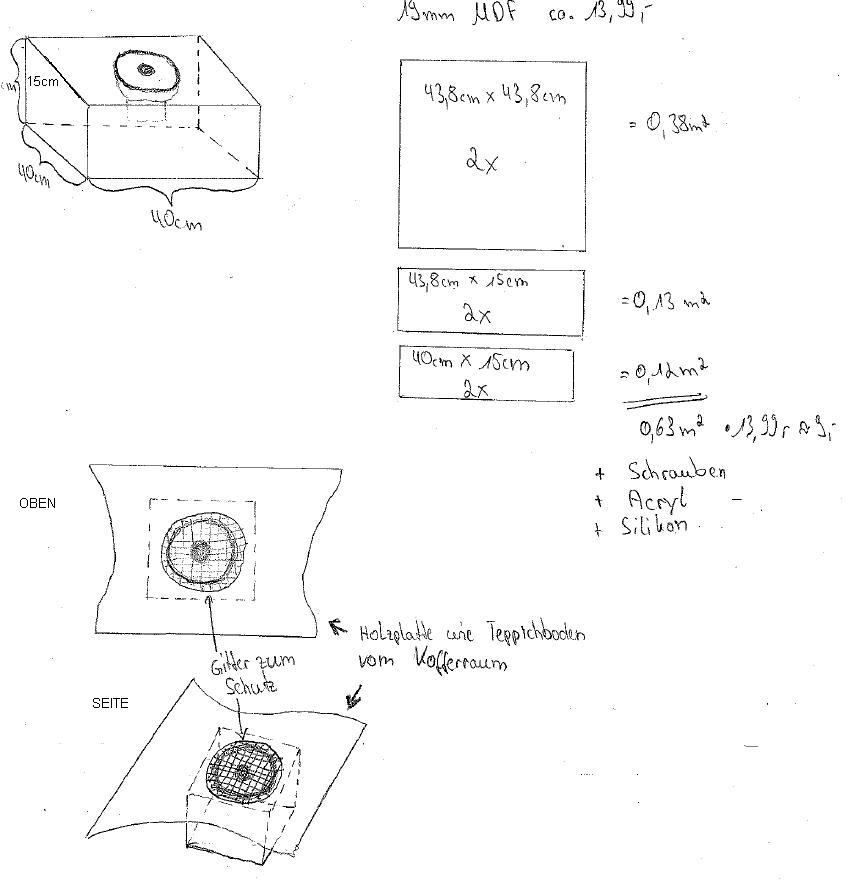 19mm MDF ca. 13,99,-
15cm
40cm
40cm
43,8cm x 43,8cm
2x
= 0,38m²
43,8cm x 15cm
2x
= 0,13 m²
40cm x 15cm
2x
= 0,12m²
0,63m² • 13,99,- ≈ 9,-
+ Schrauben
+ Acryl -
+ Silikon
OBEN
Holzplatte wie Teppichboden
vom Kofferraum
Gitter zum
Schutz
SEITE